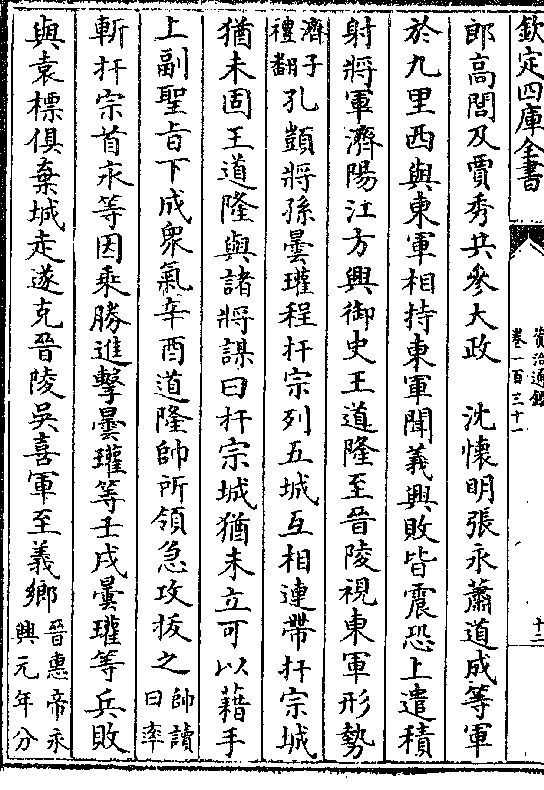 欽定四庫全書
資治通鑑
卷一百三十一
十二
郎高閭及賈秀共參大政　沈懷明張永蕭道成等軍
於九里西與東軍相持東軍聞義興敗皆震恐上遣積
射將軍濟陽江方興御史王道隆至晉陵視東軍形勢
濟子
禮翻
孔顗將孫曇瓘程扞宗列五城互相連帶扞宗城
猶未固王道隆與諸將謀曰扞宗城猶未立可以藉手
上副聖旨下成衆氣辛酉道隆帥所領急攻拔之
帥讀
曰率
斬扞宗首永等因乘勝進擊曇瓘等壬戌曇瓘等兵敗
與袁標俱棄城走遂克晉陵吳喜軍至義鄉
晉惠帝永
興元年分